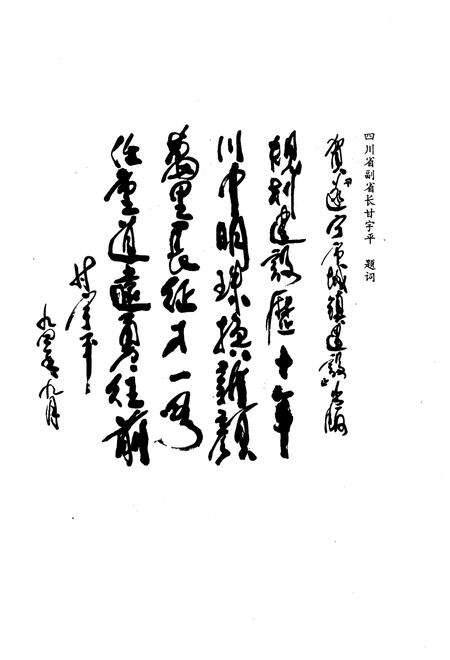 四川省副省长甘宇平 题词
贺遂宁市城镇建设出版
规划建设历十年
川中明珠换新颜
万里长征才一步
任重道远勇往前
甘宇平
九四年九月